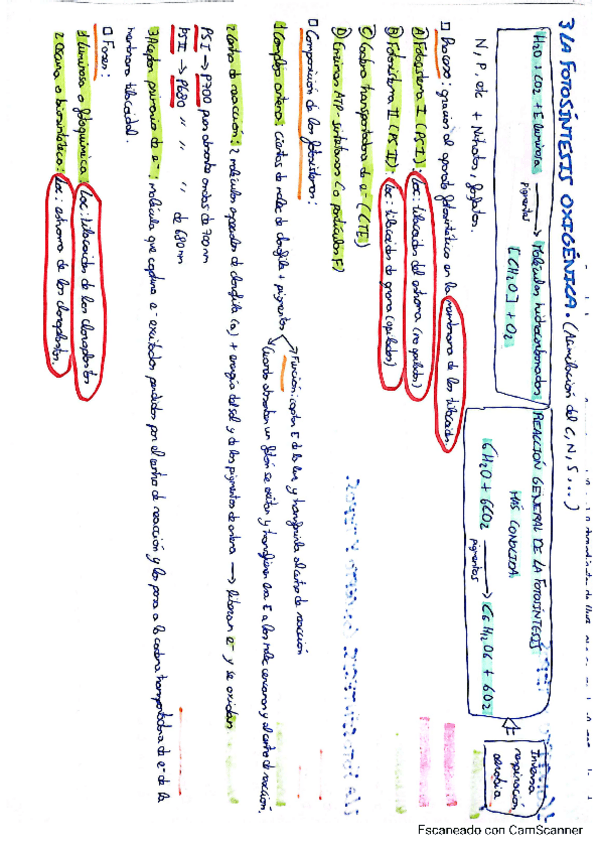 3 LA FOTOSÍNTESIS OXIGÉNICA. (Asimilación del C, N, S, ...)
H2O + CO2 + E luminosa → Moléculas hidrocarbonadas
pigmentos
[CH2O] + O2
REACCIÓN GENERAL DE LA FOTOSÍNTESIS
MÁS CONOCIDA
6H2O + 6CO2 → C6H12O6 + 6O2
pigmentos
Inversa
respiración
aerobia
N, P, etc + Nitratos, fosfatos.
Proceso: gracias al aparato fotosintético en la membrana de los tilacoides.
A) Fotosistema I (PSI): Loc: tilacoides del estroma (no apilados)
B) Fotosistema II (PSII): Loc: tilacoides de grana (apilados)
C) Cadena transportadora de e- (CTE)
D) Enzimas ATP-sintetasas (o partículas F)
Composición de los fotosistemas:
1) Complejo antena: cientos de moléc de clorofila + pigmentos
Función: captan E de la luz y transferirla al centro de reacción
Cuando absorben un fotón se excitan y transfieren esa E a las moléc cercanas y al centro de reacción.
2) Centro de reacción: 2 moléculas especiales de clorofila (a) + energía del sol y de los pigmentos de antena → liberan e- y se oxidan
PSI → P700 pq absorbe ondas de 700nm
PSII → P680 " " " de 680nm
3) Aceptor primario de e-: molécula que captura e- excitados perdidos por el centro de reacción y los pasa a la cadena transportadora de e- de la
membrana tilacoidal.
Fases:
1) Luminosa o fotoquímica: Loc: tilacoides de los cloroplastos
2) Oscura o biosintética: Loc: estroma de los cloroplastos.
Escaneado con CamScanner